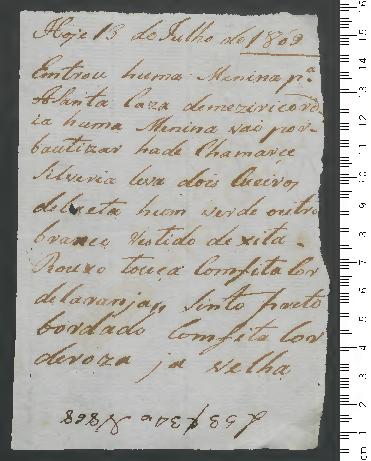 Hoje 13 de Julho de 1869
Emtrou huma Menina pª
ASanta Caza demeziricord
ia huma Menina vai por
bautizar hade Chamarçe
Silveria leva dois Cueiros
debaeta hum verde outro
branco Vistido de xita
Rouxo touca Comfita Cor
delaranja, Sinto preto
bordado Comfita Cor
deroza ja velha